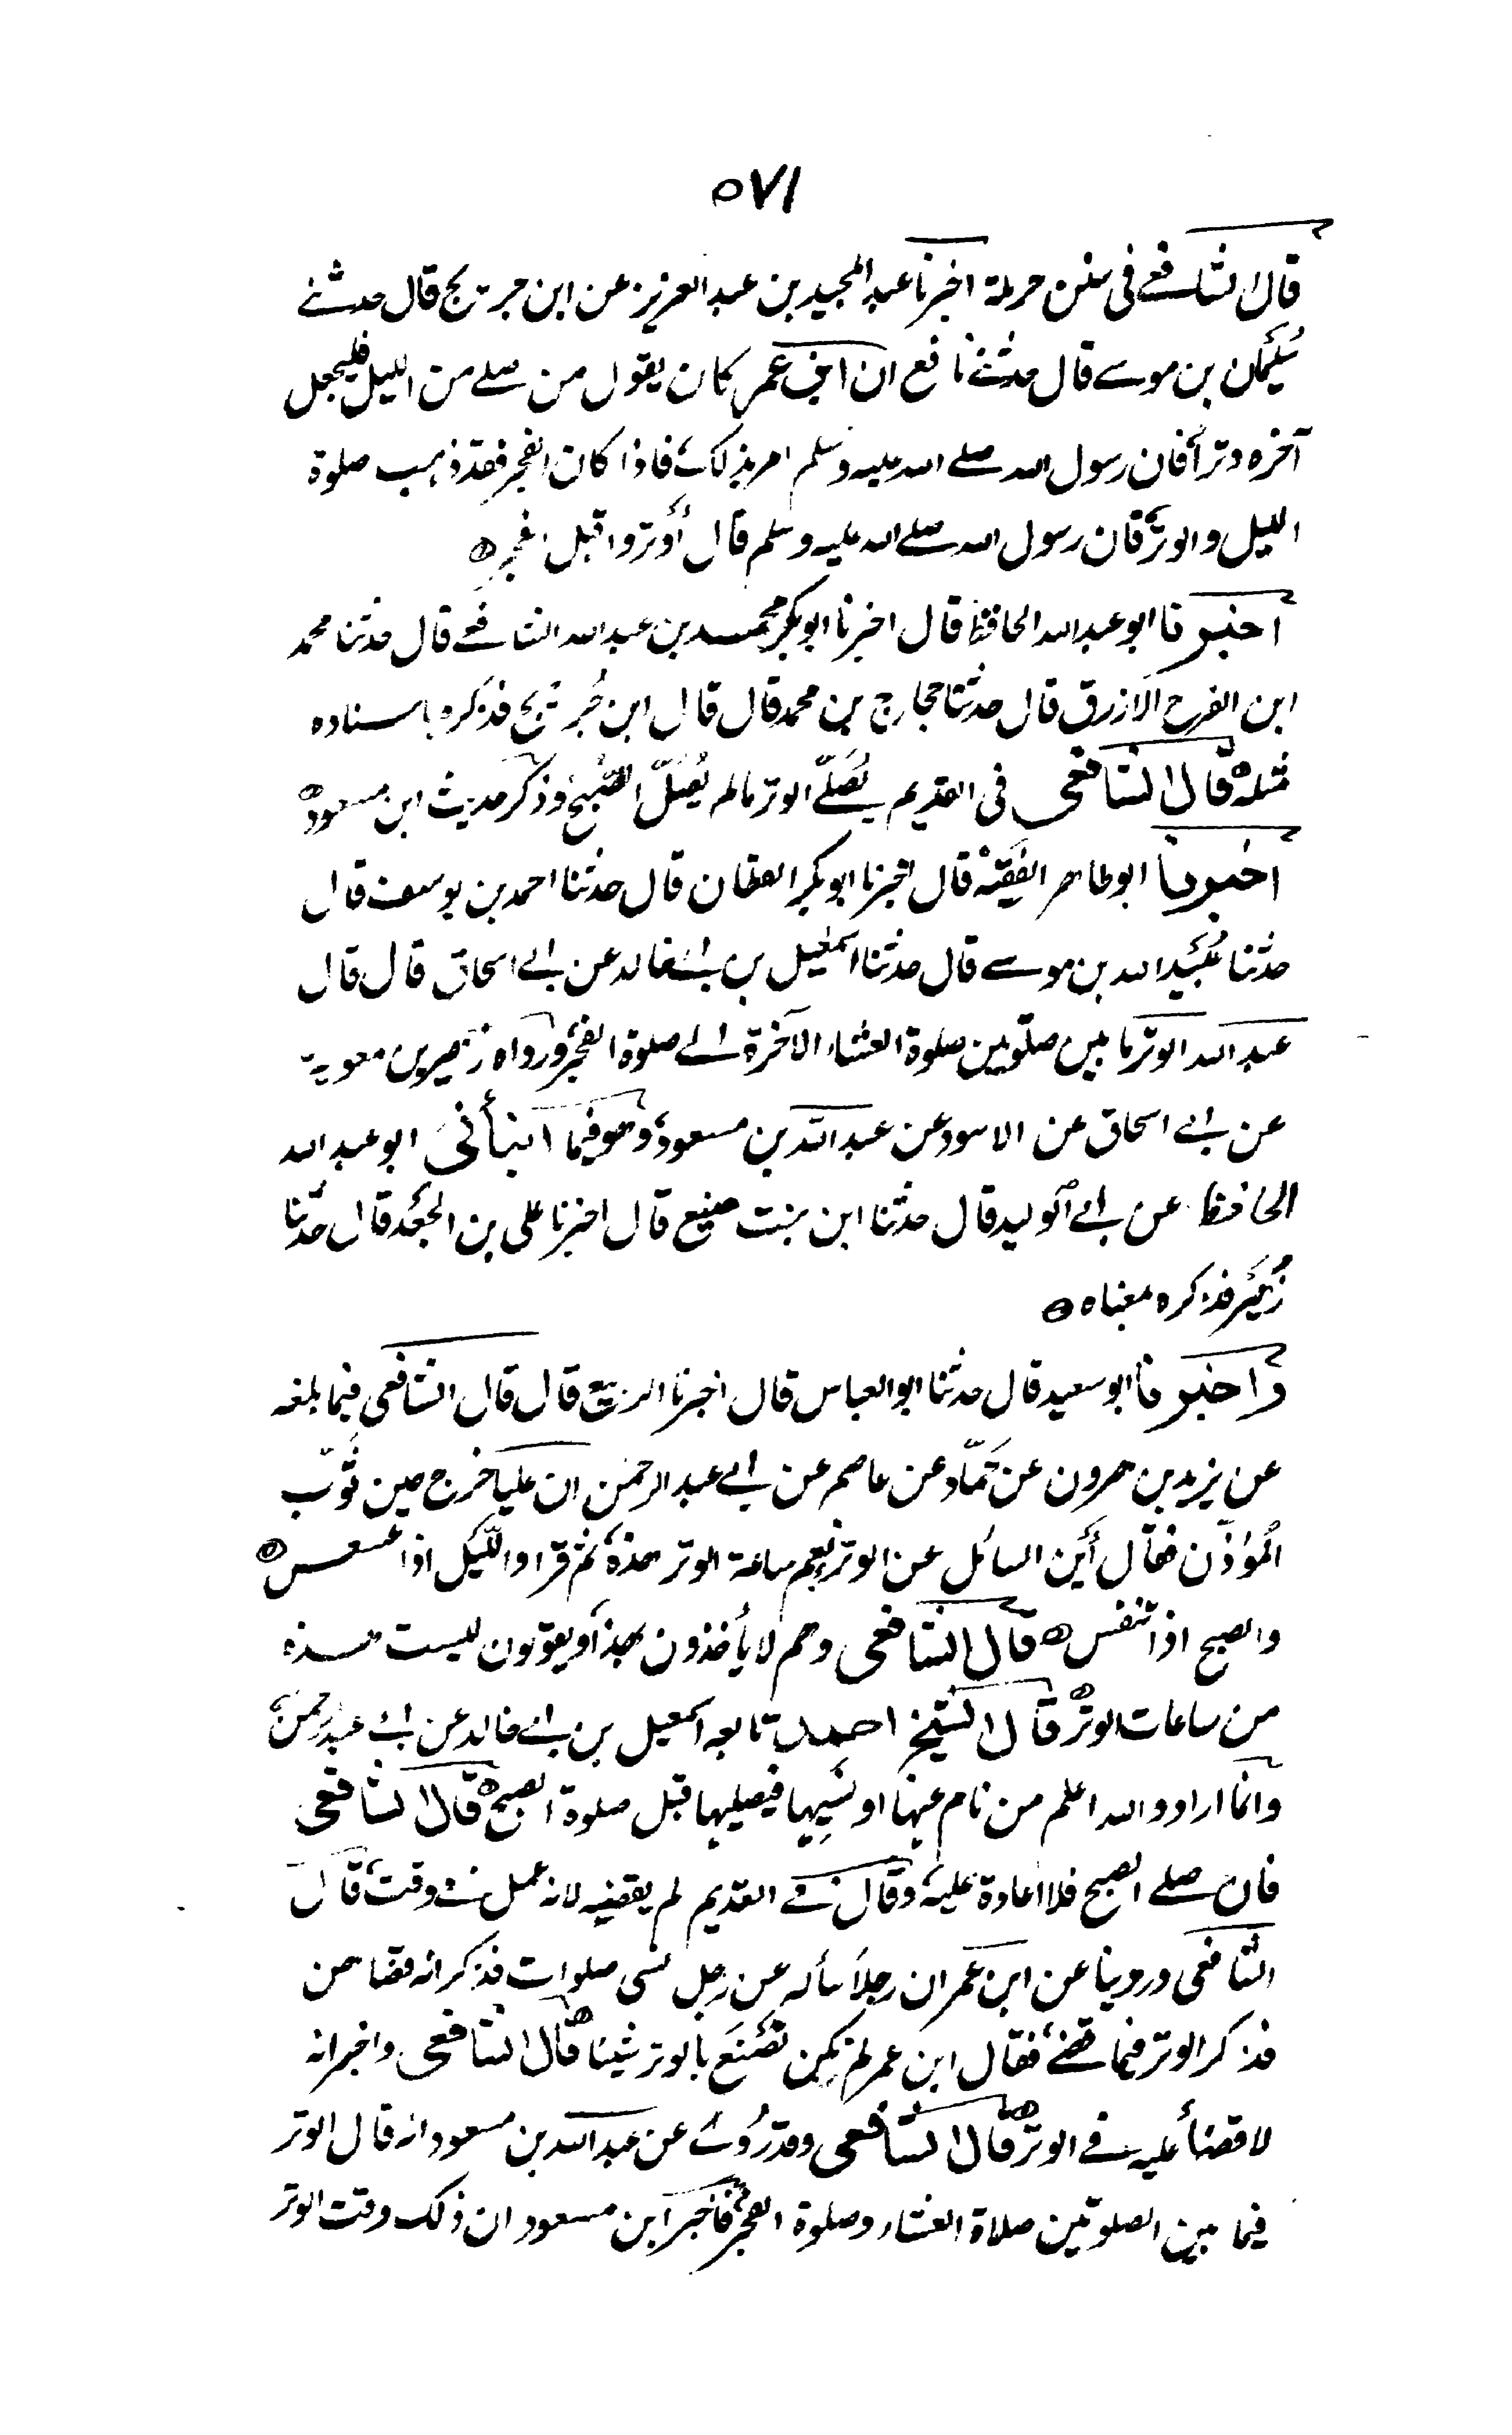 ٥٧١
قال الشافعي في سنن حرملة اخبرنا عبد المجيد بن عبد العزيز عن ابن جريج قال حدثني
سُليمان بن موسى قال حدثني نافع ان ابن عمر كان يقول من صلى من الليل فليجعل
آخره وتراً فان رسول الله صلى الله عليه وسلم امر بذلك فاذا كان الفجر فقد ذهب صلوة
الليل والوتر فان رسول الله صلى الله عليه وسلم قال أوتروا قبل الفجر
اخبرنا ابو عبد الله الحافظ قال اخبرنا ابو بكر محمد بن عبد الله الشافعي قال حدثنا محمد
ابن الفرج الازرق قال حدثنا حجاج بن محمد قال قال ابن جُريج فذكره باسناده
مثله قال الشافعي في القديم يُصلّي الوتر ما لم يُصلّ الصُّبح وذكر حديث ابن مسعود
اخبرنا ابو طاهر الفقيه قال اخبرنا ابو بكر القطان قال حدثنا احمد بن يوسف قال
حدثنا عُبَيد الله بن موسى قال حدثنا اسمٰعيل بن ابي خالد عن ابي اسحاق قال قال
عبد الله الوتر ما بين صلوتين صلوة العشاء الآخرة الى صلوة الفجر ورواه زهير بن معوية
عن ابي اسحاق عن الاسود عن عبد الله بن مسعود وهو فيما انبأني ابو عبد الله
الحافظ عن ابي الوليد قال حدثنا ابن بنت منيع قال اخبرنا علي بن الجعد قال حدثنا
زُهَير فذكره بمعناه
واخبرنا ابو سعيد قال حدثنا ابو العباس قال اخبرنا الربيع قال قال الشافعي فيما بلغه
عن يزيد بن هرون عن حَمّاد عن عاصم عن ابي عبد الرحمٰن ان عليا خرج حين ثَوّب
المؤذّن فقال أين السائل عن الوتر نعم ساعة الوتر هذه ثم قرا والليل اذا عسعس
والصبح اذا تنفس قال الشافعي وهم لا يأخذون بهذا ويقولون ليست هذه
من ساعات الوتر قال الشيخ احمد تابعه اسمعيل بن ابي خالد عن ابي عبد الرحمن
وانما اراد والله اعلم من نام عنها او نسيها فيصليها قبل صلوة الصبح قال الشافعي
فان صلى الصبح فلا اعادة عليه وقال في القديم لم يقضيه لانه عمل في وقت قال
الشافعي وروينا عن ابن عمر ان رجلاً سأله عن رجل نسي صلوات فذكر انه قضاهن
فذكر الوتر فيما قضى فقال ابن عمر لم يكن تصنَعَ بالوتر شيئا قال الشافعي واخبر انه
لا قضاء عليه في الوتر قال الشافعي وقد رُوي عن عبد الله بن مسعود انه قال الوتر
فيما بين الصلوتين صلاة العشاء وصلوة الفجر فاخبر ابن مسعود ان ذلك وقت الوتر